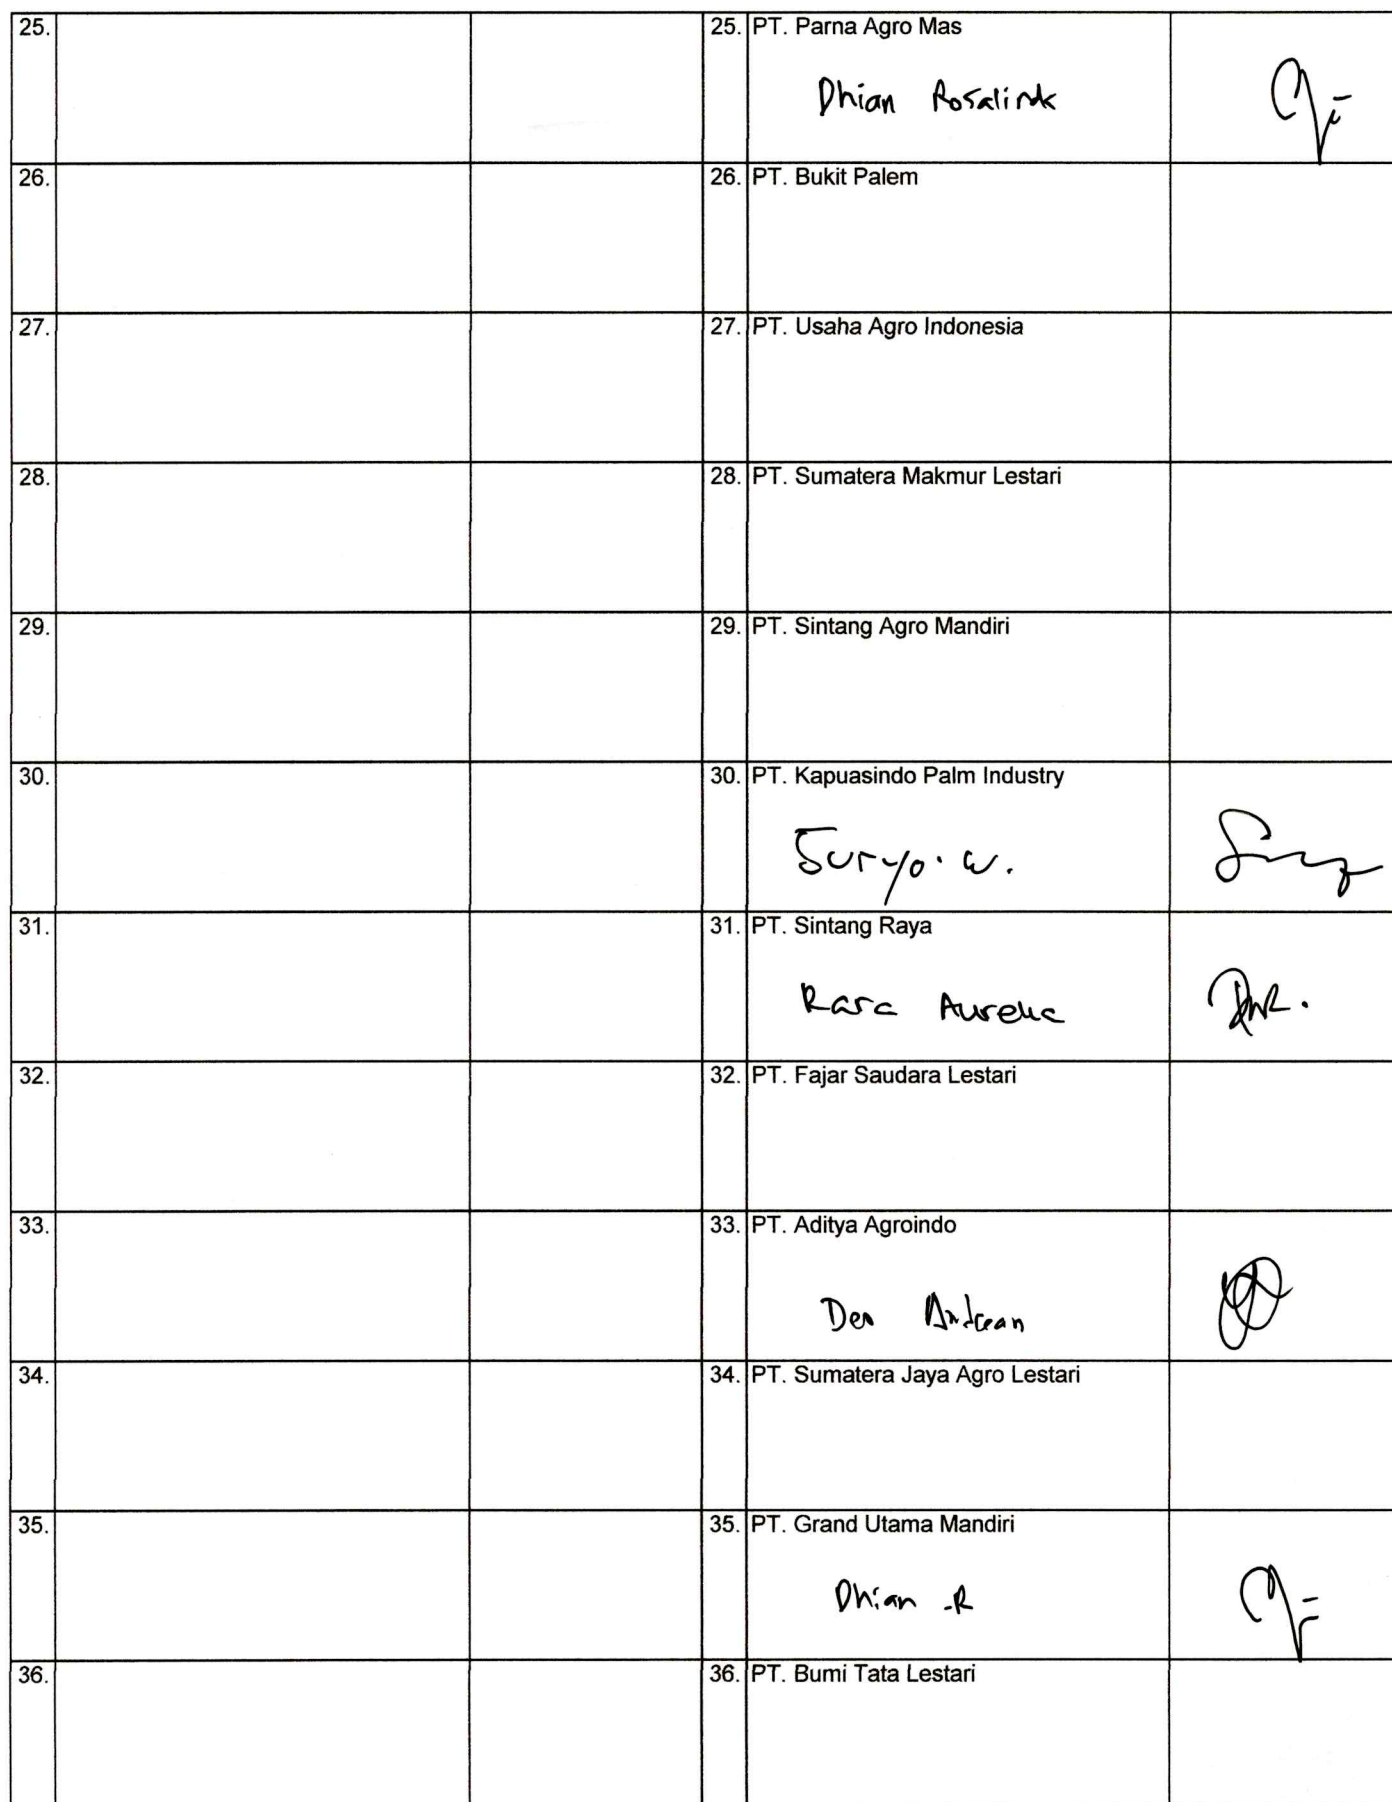 25. 25. PT. Parna Agro Mas
Dhian Rosalinda
26. 26. PT. Bukit Palem
27. 27. PT. Usaha Agro Indonesia
28. 28. PT. Sumatera Makmur Lestari
29. 29. PT. Sintang Agro Mandiri
30. 30. PT. Kapuasindo Palm Industry
Suryo. W.
31. 31. PT. Sintang Raya
Rara Aurelia
32. 32. PT. Fajar Saudara Lestari
33. 33. PT. Aditya Agroindo
Deo Andrean
34. 34. PT. Sumatera Jaya Agro Lestari
35. 35. PT. Grand Utama Mandiri
Dhian .R
36. 36. PT. Bumi Tata Lestari